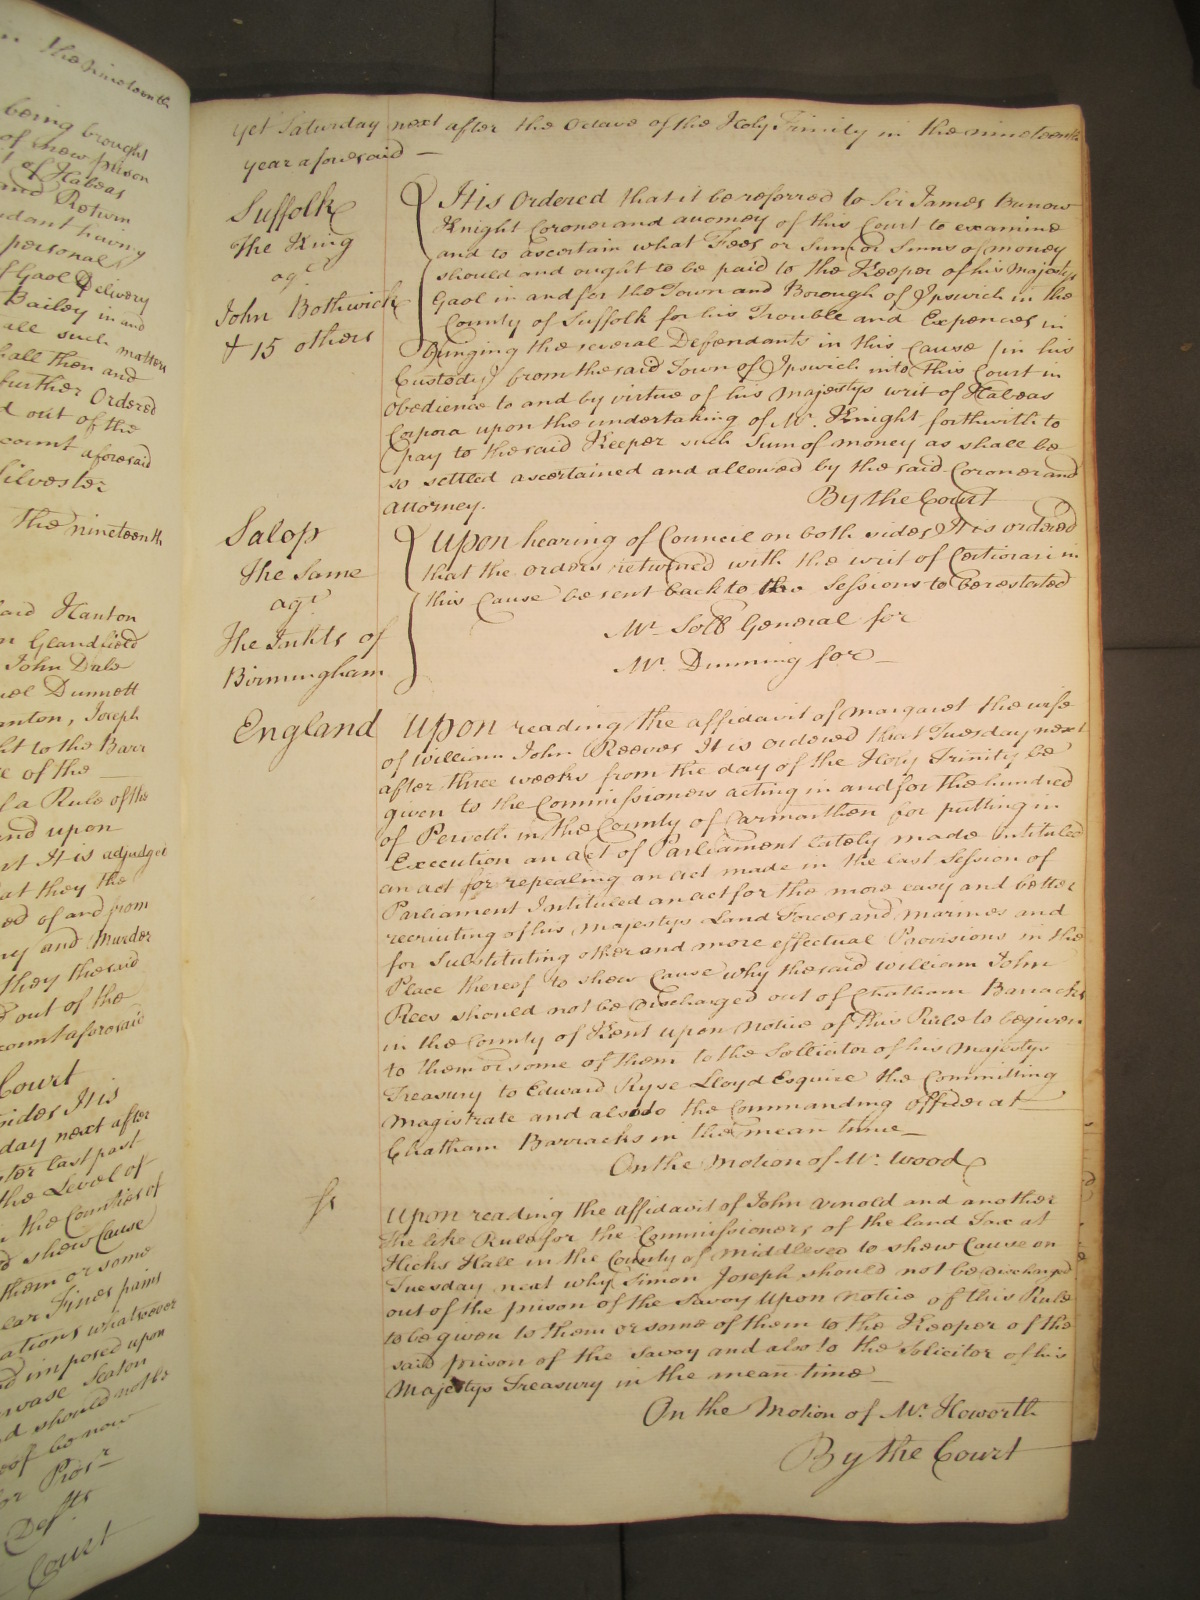 the nineteenth
being brought
of new prison
of Habeas
and Return
dant having
personal
f Gaol Delivery
Bailey in and
all such matters
all then and
further Ordered
d out of the
count aforesaid
Silvester
the nineteenth
said Hanton
n Glandfield
John Dale
uel Dunnett
anton, Joseph
ht to the Barr
e of the
f a Rule of the
and upon
rt It is adjudged
at they the
ed of and from
ry and Murder
they the said
d out of the
count aforesaid
Court
sides It is
day next after
ster last past
the Level of
n the Counties of
d shew Cause
them or some
ear Fines pains
ations whatsoever
d imposed upon
rvase Seaton
d should not be
eof be now
for Prosr
Defts
Court
Yet Saturday next after the Octave of the Holy Trinity in the nineteenth
year aforesaid —
Suffolk
The King
agt
John Bothwick
& 15 others
It is Ordered that it be referred to Sir James Burrow
Knight Coroner and attorney of this Court to examine
and to ascertain what Fees or Sum or Sums of money
should and ought to be paid to the Keeper of his Majestys
Gaol in and for the Town and Borough of Ipswich in the
County of Suffolk for his Trouble and Expences in
bringing the several Defendants in this Cause (in his
Custody) from the said Town of Ipswich into this Court in
obedience to and by virtue of his Majestys writ of Habeas
Corpora upon the undertaking of Mr. Knight forthwith to
pay to the said Keeper such Sum of money as shall be
so settled ascertained and allowed by the said Coroner and
attorney.
By the Court
Salop
The Same
agt
The Inhts of
Birmingham
Upon hearing of Councel on both sides It is ordered
that the orders returned with the writ of Certiorari in
this Cause be sent back to the Sessions to be restated
Mr. Solr General for
Mr. Dunning for —
England
Upon reading the affidavit of Margaret the wife
of William John Reeves It is ordered that Tuesday next
after three weeks from the day of the Holy Trinity be
given to the Commissioners acting in and for the hundred
of Perveth in the County of Carmarthen for putting in
Execution an act of Parliament lately made intituled
an act for repealing an act made in the last Session of
Parliament Intituled an act for the more easy and better
recruiting of his Majestys Land Forces and Marines and
for Substituting other and more effectual Provisions in the
Place thereof to shew Cause why the said William John
Rees should not be discharged out of Chatham Barracks
in the County of Kent upon notice of this Rule to be given
to them or some of them to the Sollicitor of his Majestys
Treasury to Edward Pryse Lloyd Esquire the Committing
Magistrate and also to the Commanding officer at
Chatham Barracks in the mean time —
On the Motion of Mr. Wood
Upon reading the affidavit of John Arnold and another
The like Rule for the Commissioners of the land Tax at
Hicks Hall in the County of Middlesex to shew Cause on
Tuesday next why Simon Joseph should not be discharged
out of the prison of the Savoy Upon notice of this Rule
to be given to them or some of them to the Keeper of the
said prison of the Savoy and also to the Solicitor of his
Majestys Treasury in the mean time
On the Motion of Mr. Howorth
By the Court